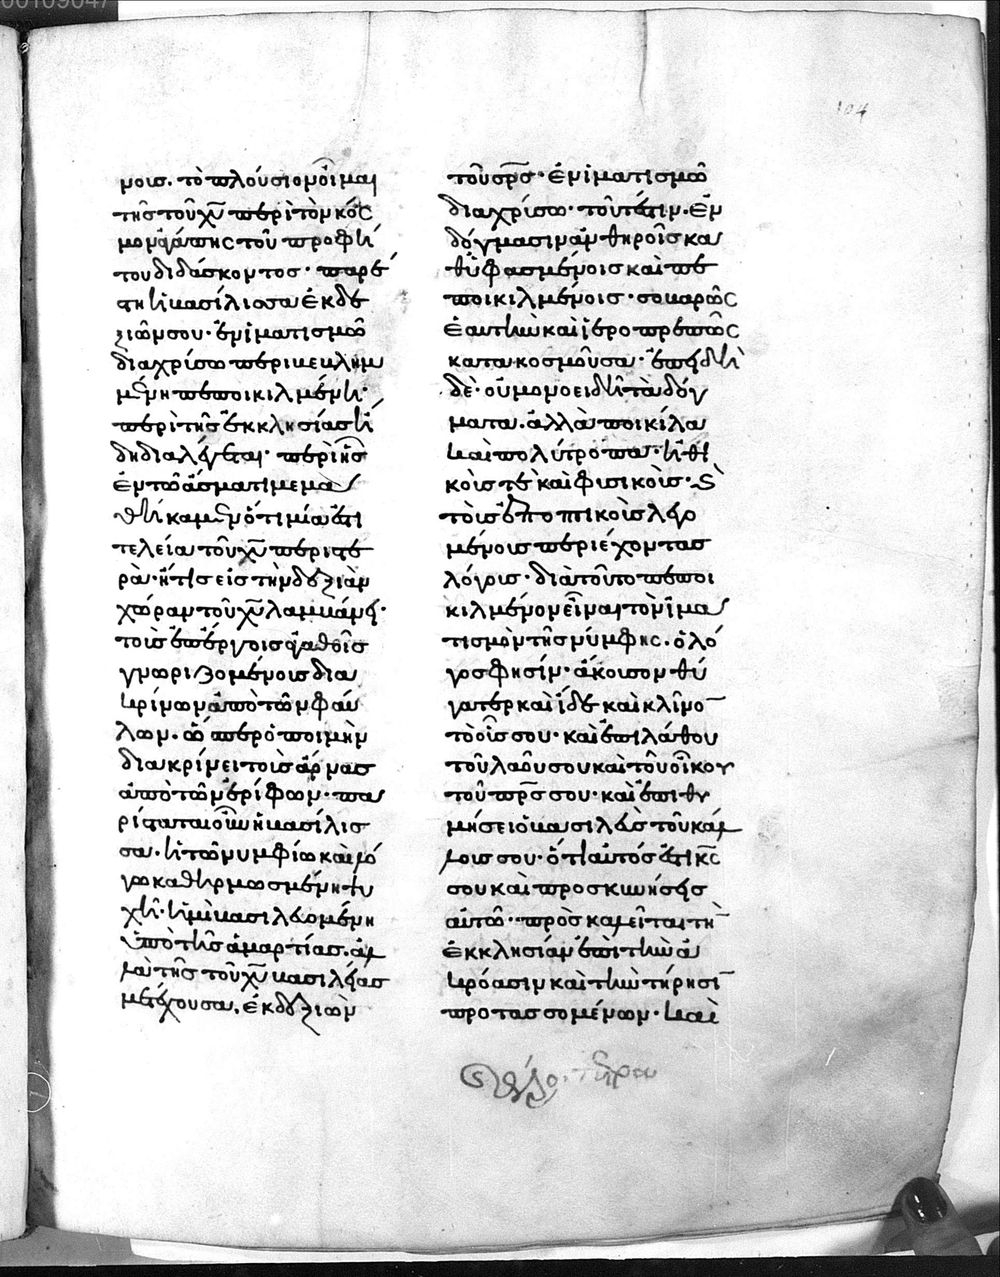 104
μοισ. τὸ πλούσιον εἶναι
τῆς τοῦ χυ περὶ τὸν κόσ
μον ἀγάπης τοῦ προφή
του διδάσκοντος· παρέ
στη ἡ βασίλισσα ἐκ δε
ξιῶν σου· ἐν ἱματισμῶ
διαχρύσω περιβεβλημ
μένη πεποικιλμένη·
περὶ τῆς ἐκκλησίας ἤ
δη διαλέγεται· περὶ ἧς
ἐν τῶ ἄσματι μεμα
θήκαμεν ὅτι μία ἐστὶ
τελεία τοῦ χυ περιστε
ρὰ· ἥτις εἰς τὴν δεξιὰν
χώραν τοῦ χυ λαμβάνει·
τοὺς ἐπ ἔργοις ἀγαθοῖς
γνωριζομένους δια
κρίνων ἀπὸ τῶν φαύ
λων. ὥσπερ ὁ ποιμὴν
διακρίνει τοὺς ἄρνας
ἀπὸ τῶν ἐρίφων· πα
ρίσταται οὖν ἡ βασίλισ
σα. ἡ τῶ νυμφίω καὶ λό
γω καθηρμωσμένη ψυ
χὴ· ἡ μὴ βασιλευομένη
ὑπὸ τῆς ἁμαρτίας. ἀλ
λὰ τῆς τοῦ χυ βασιλείας
μετέχουσα. ἐκ δεξιῶν
τοῦ σρς· ἐν ἱματισμῶ
διαχρύσω· τουτέστιν. ἐν
δόγμασιν ἀνθηροῖς κα
θυφασμένοις καὶ πε
ποικιλμένοις· σοβαρῶς
ἑαυτὴν καὶ ἱεροπρεπῶς
κατακοσμοῦσα· ἐπειδὴ
δὲ οὐ μονοειδῆ τὰ δόγ
ματα. ἀλλὰ ποικίλα
καὶ πολύτροπα· ἠθι
κοῖς τε καὶ φυσικοῖς·
τοὺς ἐποπτικοὺς λεγο
μένους περιέχοντας
λόγους· διὰ τοῦτο πεποι
κιλμένον εἶναι τὸν ἱμα
τισμὸν τῆς νύμφης. ὁ λό
γος φησίν· ἄκουσον θύ
γατερ καὶ ἴδε καὶ κλῖνο
τὸ οὖς σου· καὶ ἐπιλάθου
τοῦ λαοῦ σου καὶ τοῦ οἴκου
τοῦ πρς σου· καὶ ἐπιθυ
μήσει ὁ βασιλεὺς τοῦ κάλ
λους σου· ὅτι αὐτός ἐστι κς
σου καὶ προσκυνήσεις
αὐτῶ· προσκαλεῖται τὴ
ἐκκλησίαν ἐπὶ τὴν ἀ
κρόασιν καὶ τὴν τήρησι
προτασσομένων· καὶ